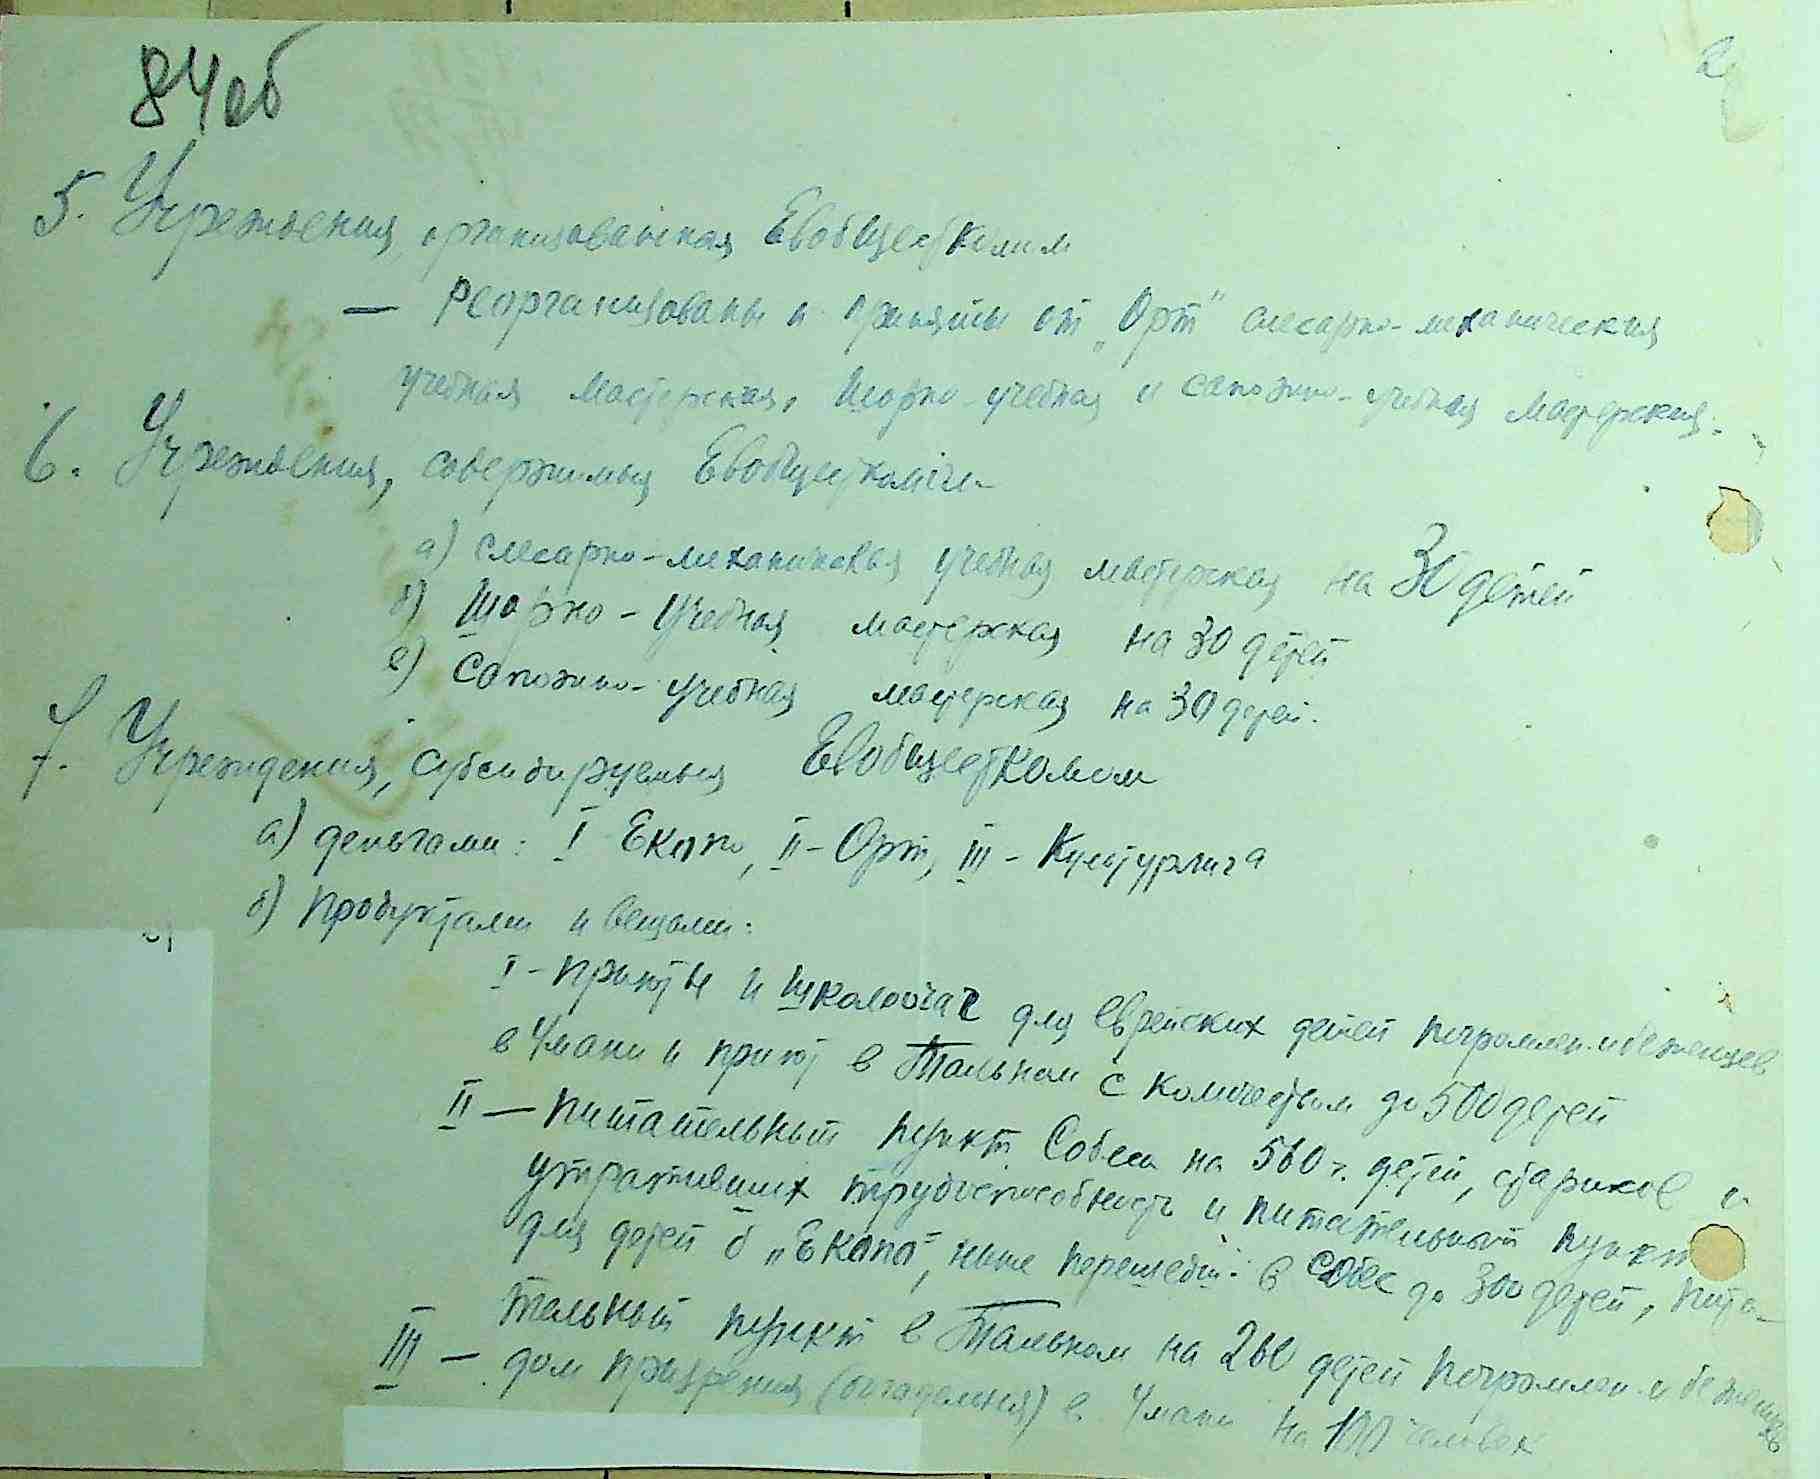 84об
2
5. Учреждения, организованная Евобщесткомом
— Реорганизованы и приняты от „Орт" слесарно-механическая
учебная мастерская, Шорно-учебная и сапожно-учебная мастерския.
6. Учреждения, содержимыя Евобщесткомом
а) слесарно-механическая учебная мастерская на 30 детей
б) Шорно-Учебная мастерская на 30 детей
в) Сапожно-учебная мастерская на 30 детей.
7. Учреждения, субсидируемыя Евобщесткомом
а) деньгами: I Екопо, II - Орт, III - Культурлига
б) продуктами и вещами:
I - приюты и школоочаг для еврейских детей погромлен. и беженцев
в Умани и приют в Тальном с количеством до 500 детей
II — питательный пункт Собеса на 560 ч. детей, стариков и
утративших трудоспособность и питательный пункт
для детей б „Екопо", ныне перешедш. в собес до 300 детей, пита-
тельный пункт в Тальном на 260 детей погромлен. и беженцев
III — дом призрения (богадельня) в Умани на 100 человек